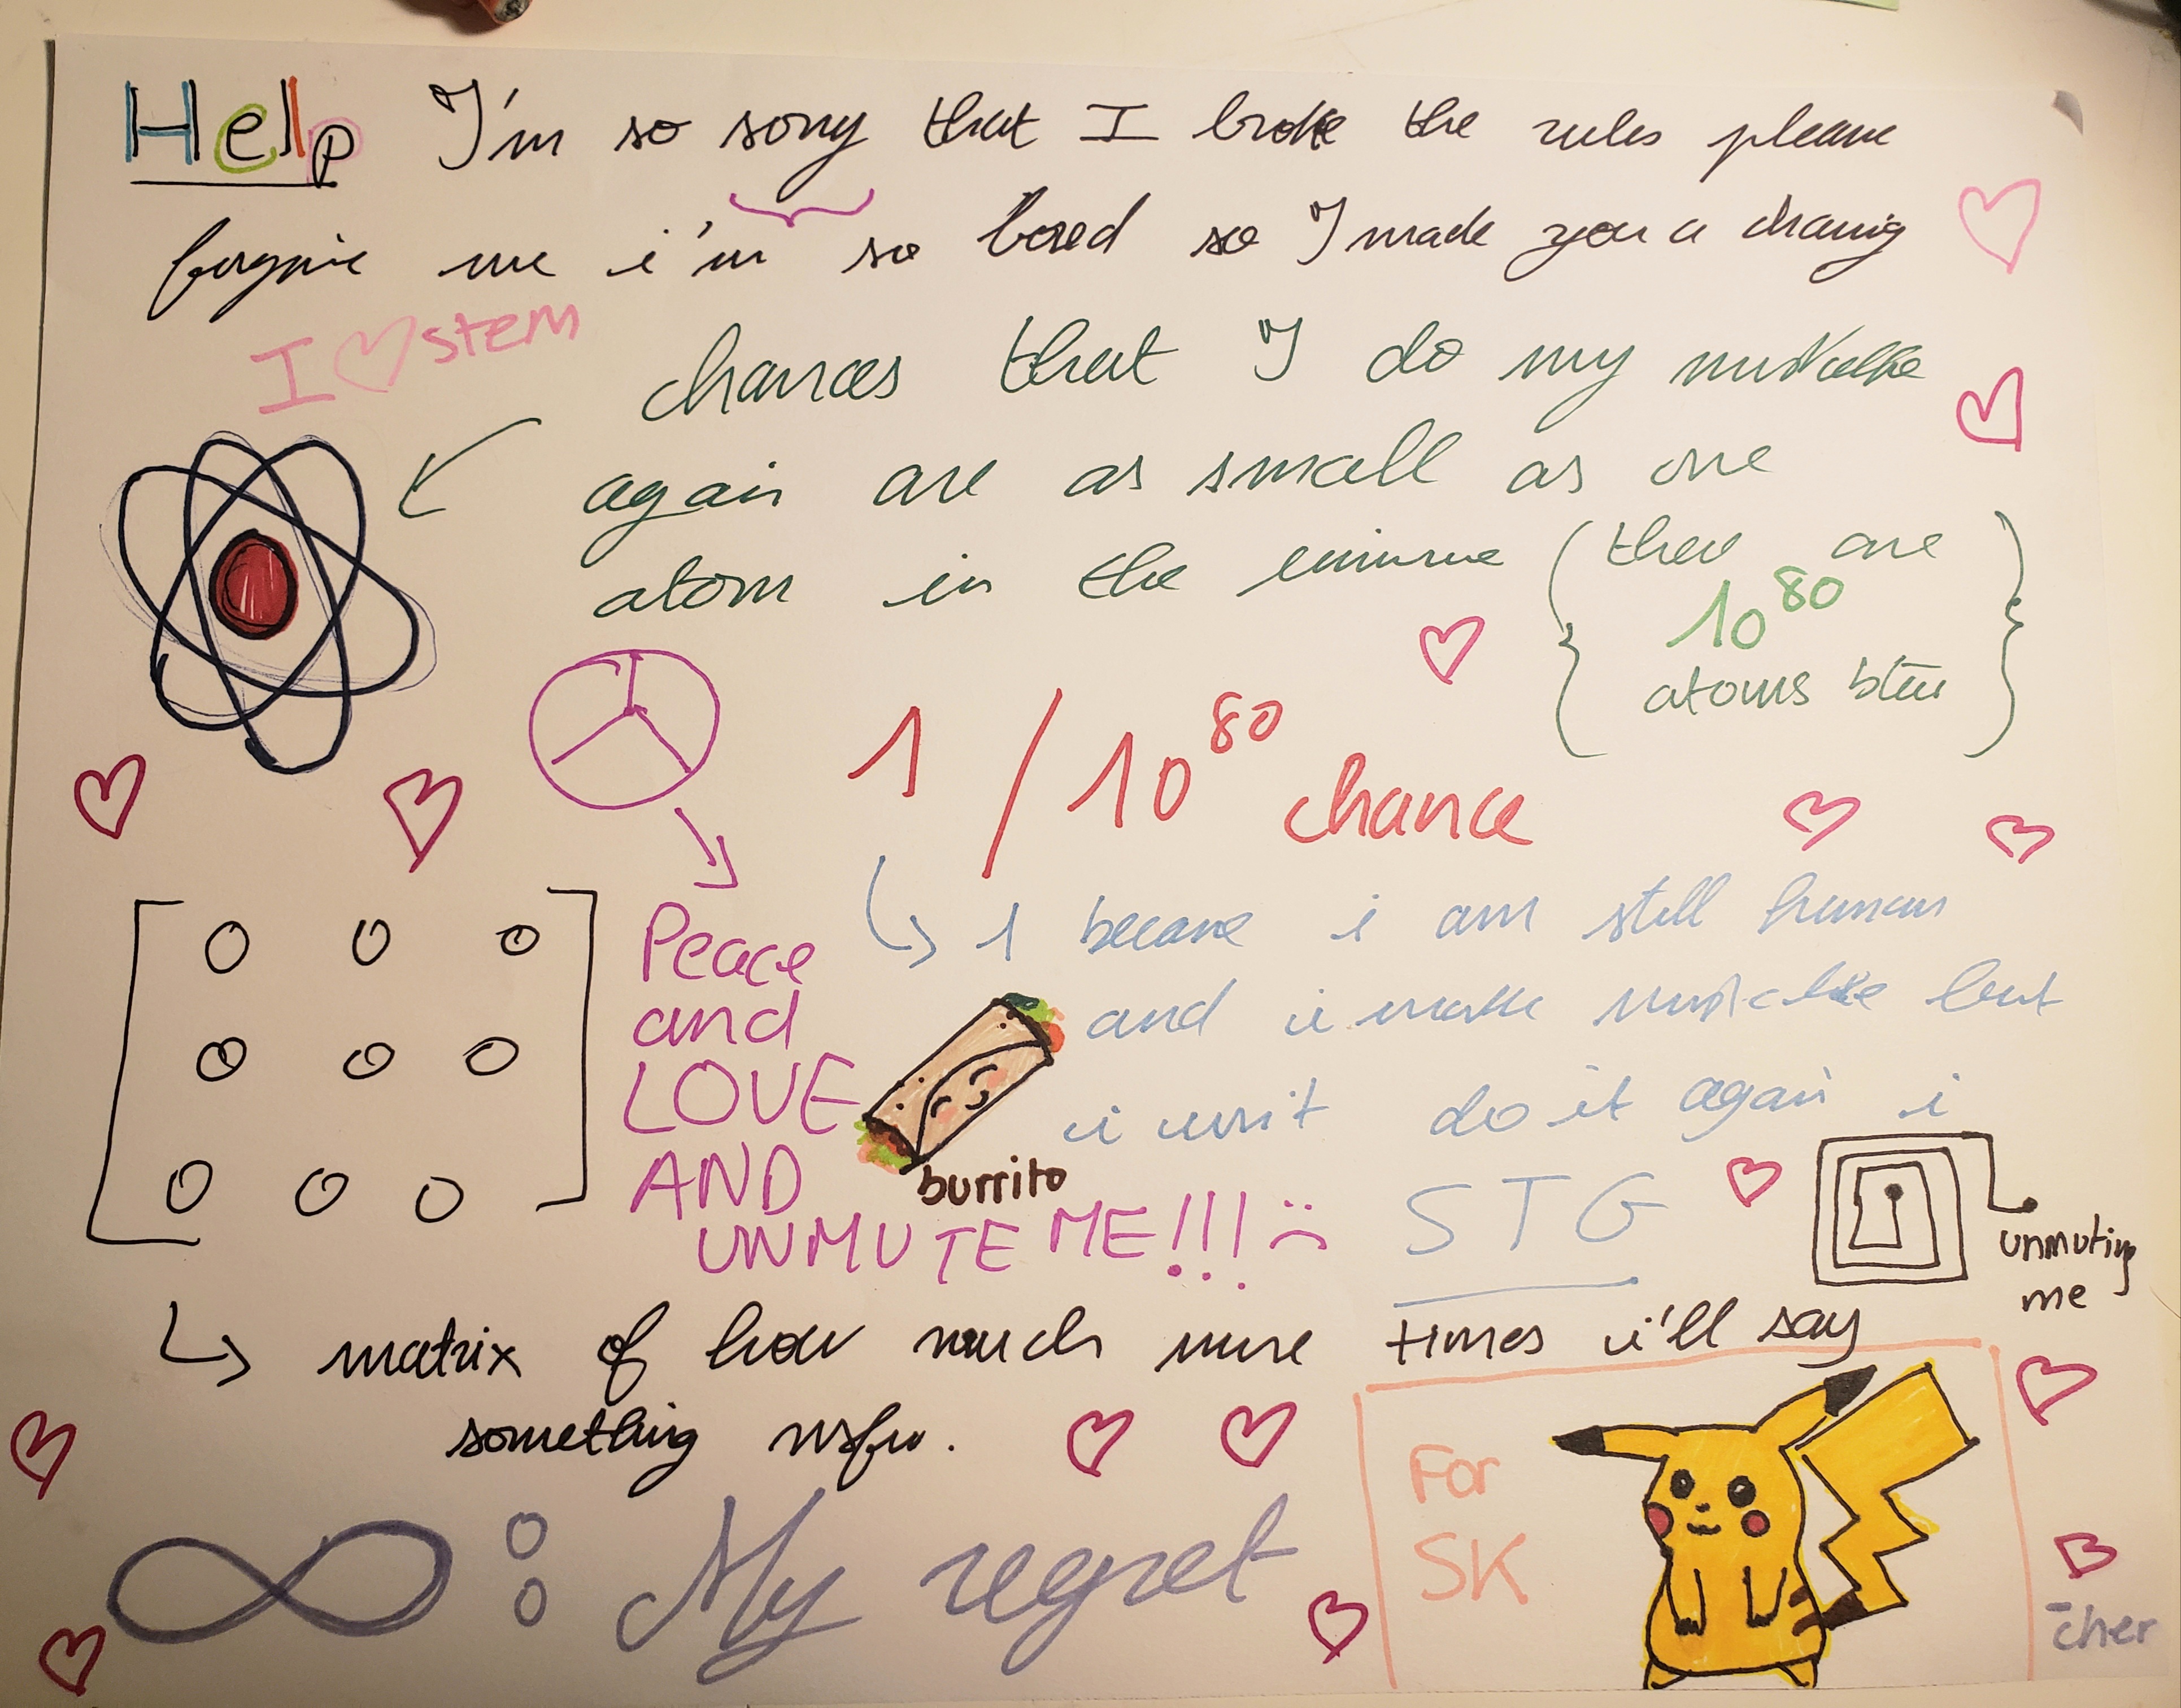 Help I'm so sorry that I broke the rules please
forgive me i'm so bored so I made you a drawing
I ♡ stem
chances that I do my mistake
again are as small as one
atom in the universe (there are
10^80
atoms btw)
1 / 10^80 chance
1 because i am still human
and i make mistake but
i won't do it again i
STG
Peace
and
LOVE
AND
UNMUTE ME!!! :(
burrito
unmuting
me
[0 0 0
0 0 0
0 0 0]
matrix of how much more times i'll say
something nsfw.
∞ : My regret
For
SK
-cher